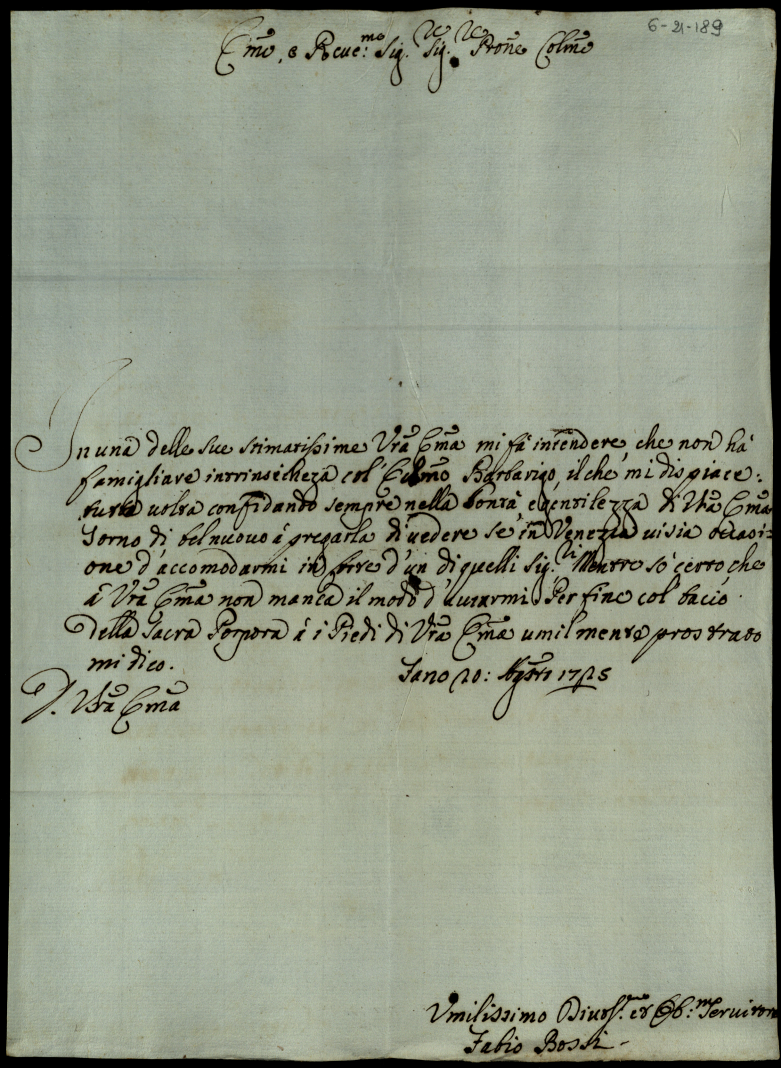 6-21-189
Em̃o, e Reue:mo Sig.re Sig.re Proñe Colm̃o
In una delle sue stimatissime Vrã Em̃a mi fà intendere, che non hà
famigliare intrinsicheza col' Em̃o Barbarigo, il che mi dispiace:
tutta uolta confidando sempre nella bontà e gentilezza di Vrã Em̃a
torno di bel nuouo á pregarla di uedere se in Venezia ui sia occasi=
one d'accomodarmi in corte d'un di quelli Sig.ri Mentre sò certo, che
á Vrã Em̃a non manca il modo d'aiutarmi. Per fine col bacio
della Sacra Porpora á i Piedi di Vrã Em̃a umilmente prostrato
mi dico.
Fano 20: Agosto 1725
D. Vrã Em̃a
Vmilissimo Diuot.mo et Ob.mo Seruitore
Fabio Bossi